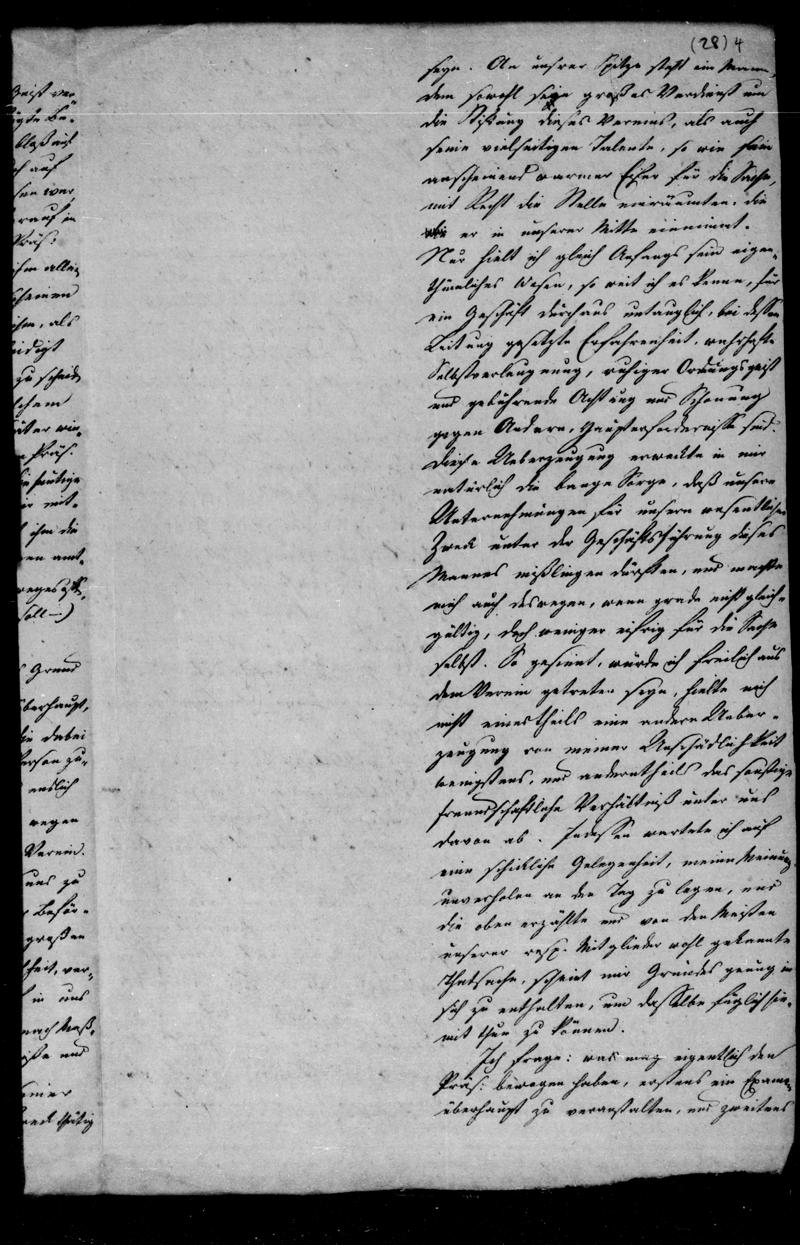 (28) 4
seyn. An unsrer Spitze steht ein Mann,
dem sowohl sein großes Verdienst um
die Stiftung dieses Vereins, als auch
seine vielseitigen Talente, so wie sein
anscheinend warmer Eifer für die Sache,
mit Recht die Stelle einräumten, die
er in unserer Mitte einnimmt.
Nur hielt ich gleich Anfangs sein eigen-
thümliches Wesen, so weit ich es kenne, für
ein Geschäft durchaus untauglich, bei dessen
Leitung gesetzte Erfahrenheit, wahrhafte
Selbstverleugnung, ruhiger Ordnungsgeist
und gebührende Achtung und Schonung
gegen Andere, Haupterfordernisse sind.
Diese Ueberzeugung erweckte in mir
natürlich die bange Sorge, daß unsere
Unternehmungen für unsern wesentlichen
Zweck unter der Geschäftsführung dieses
Mannes mißlingen dürften, und machte
mich auch deswegen, wenn grade nicht gleich-
gültig, doch weniger eifrig für die Sache
selbst. So gesinnt, würde ich freilich aus
dem Verein getreten seyn, hielte mich
nicht einestheils eine andere Ueber-
zeugung von meiner Unschädlichkeit
wenigstens, und anderntheils das sonstige
freundschaftliche Verhältniß unter uns
davon ab. Indessen wartete ich auf
eine schickliche Gelegenheit, meine Meinung
unverholen an den Tag zu legen, und
die oben erzählte und von den Meisten
unserer resp. Mitglieder wohl gekannte
Thatsache, scheint mir Grundes genug in
sich zu enthalten, um dasselbe füglich hie-
mit thun zu können.
Ich frage: was mag eigentlich den
Präs: bewogen haben, erstens ein Examen
überhaupt zu veranstalten, und zweitens